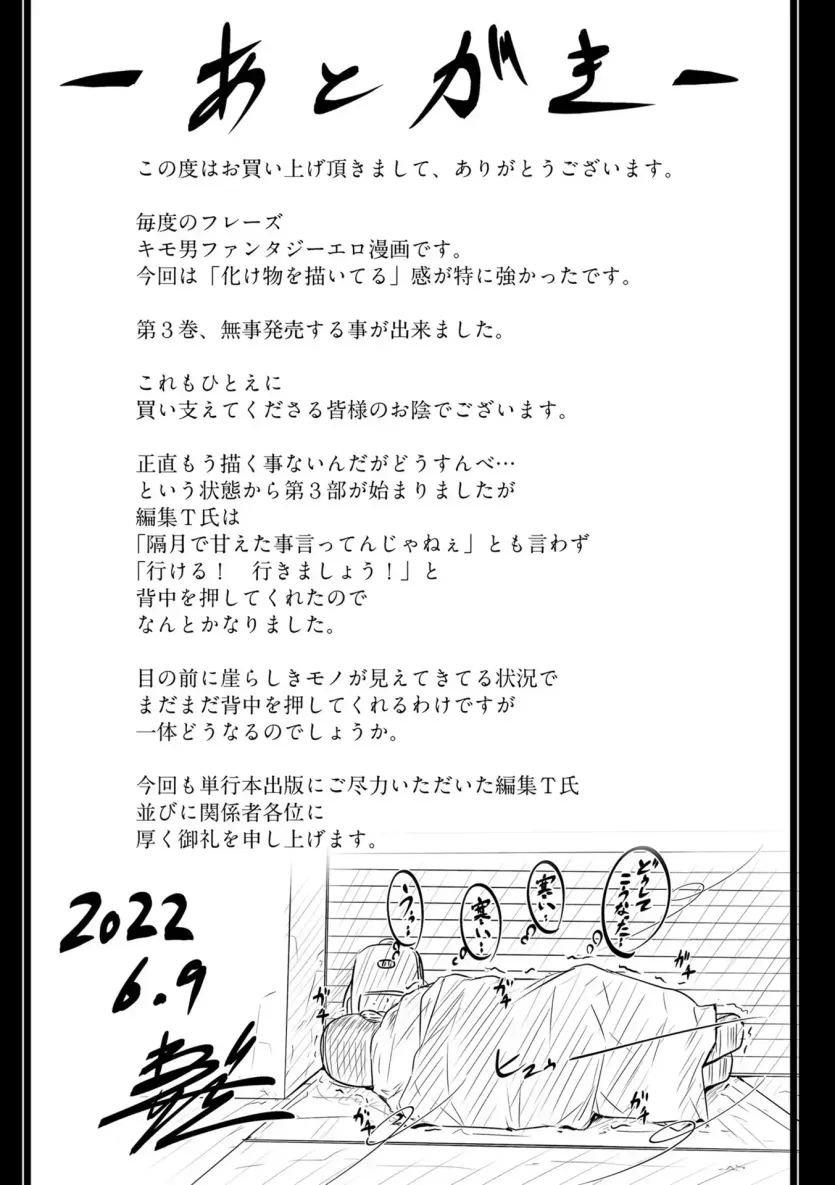 ーあとがきー
この度はお買い上げ頂きまして、ありがとうございます。
毎度のフレーズ
キモ男ファンタジーエロ漫画です。
今回は「化け物を描いてる」感が特に強かったです。
第３巻、無事発売する事が出来ました。
これもひとえに
買い支えてくださる皆様のお陰でございます。
正直もう描く事ないんだがどうすんべ…
という状態から第３部が始まりましたが
編集Ｔ氏は
「隔月で甘えた事言ってんじゃねぇ」とも言わず
「行ける！　行きましょう！」と
背中を押してくれたので
なんとかなりました。
目の前に崖らしきモノが見えてきてる状況で
まだまだ背中を押してくれるわけですが
一体どうなるのでしょうか。
今回も単行本出版にご尽力いただいた編集Ｔ氏
並びに関係者各位に
厚く御礼を申し上げます。
どうして
こうなった…
寒い…
寒い…
うぅ…
ガチ
ガチ
ガチ
ガチ
ヒュゥ
2022
6.9